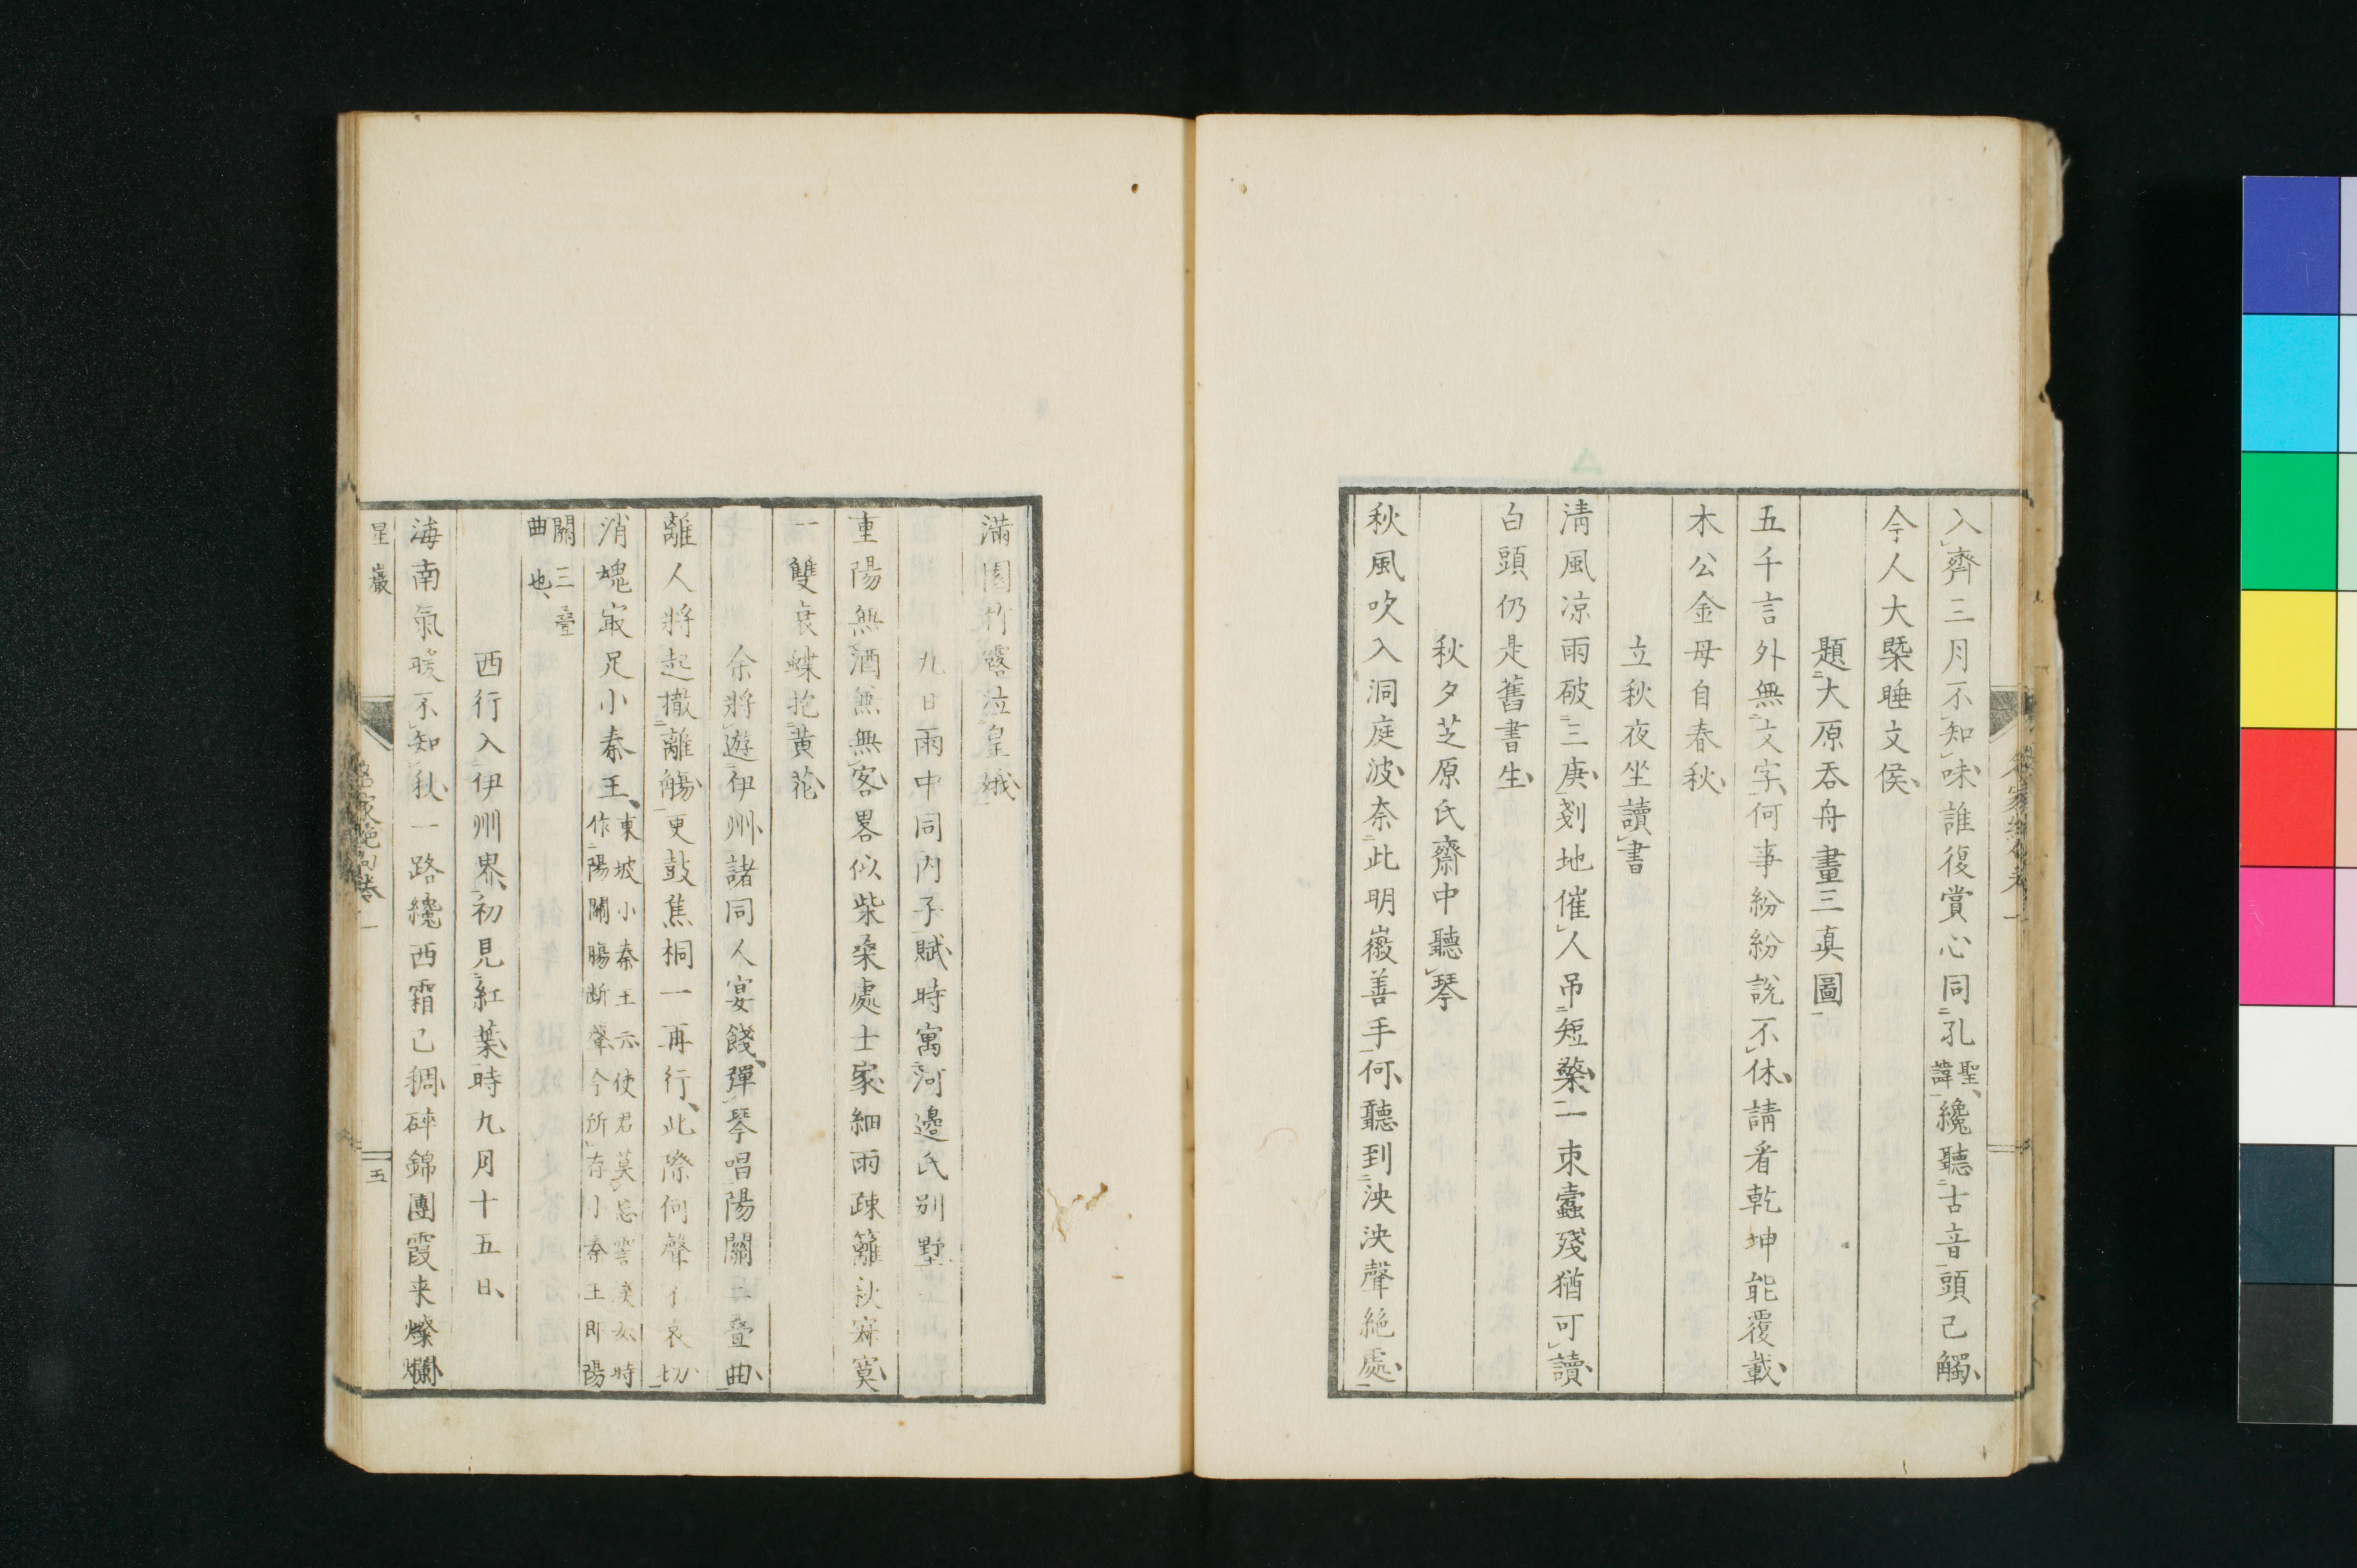 入齊三月不知味誰復賞心同孔聖諱纔聽古音頭已觸
今人大槩睡文侯
題大原呑舟畫三眞圖
五千言外無文字何事紛紛説不休請看乾坤能覆載
木公金母自春秋
立秋夜坐讀書
淸風凉雨破三庚剗地催人吊短檠一束蠹殘猶可讀
白頭仍是舊書生
秋夕芝原氏齋中聽琴
秋風吹入洞庭波奈此明徽善手何聽到泱泱聲絶處
滿園竹露泣皇娥
九日雨中同内子賦時寓河邊氏別墅
重陽無酒兼無客畧似柴桑處士家細雨疎籬秋寂寞
一雙衰蝶抱黃花
余將遊伊州諸同人宴餞彈琴唱陽關三疊曲
離人將起撤離觴更鼓焦桐一再行此際何聲不哀切
消魂最足小秦王東坡小秦王云使君莫忘霅溪女時作陽關腸断聲今所存小秦王即陽
關三疊曲也
西行入伊州界初見紅葉時九月十五日
海南氣暖不知秋一路纔西霜已稠碎錦團霞来燦爛
星巖
名家絶句卷一
五